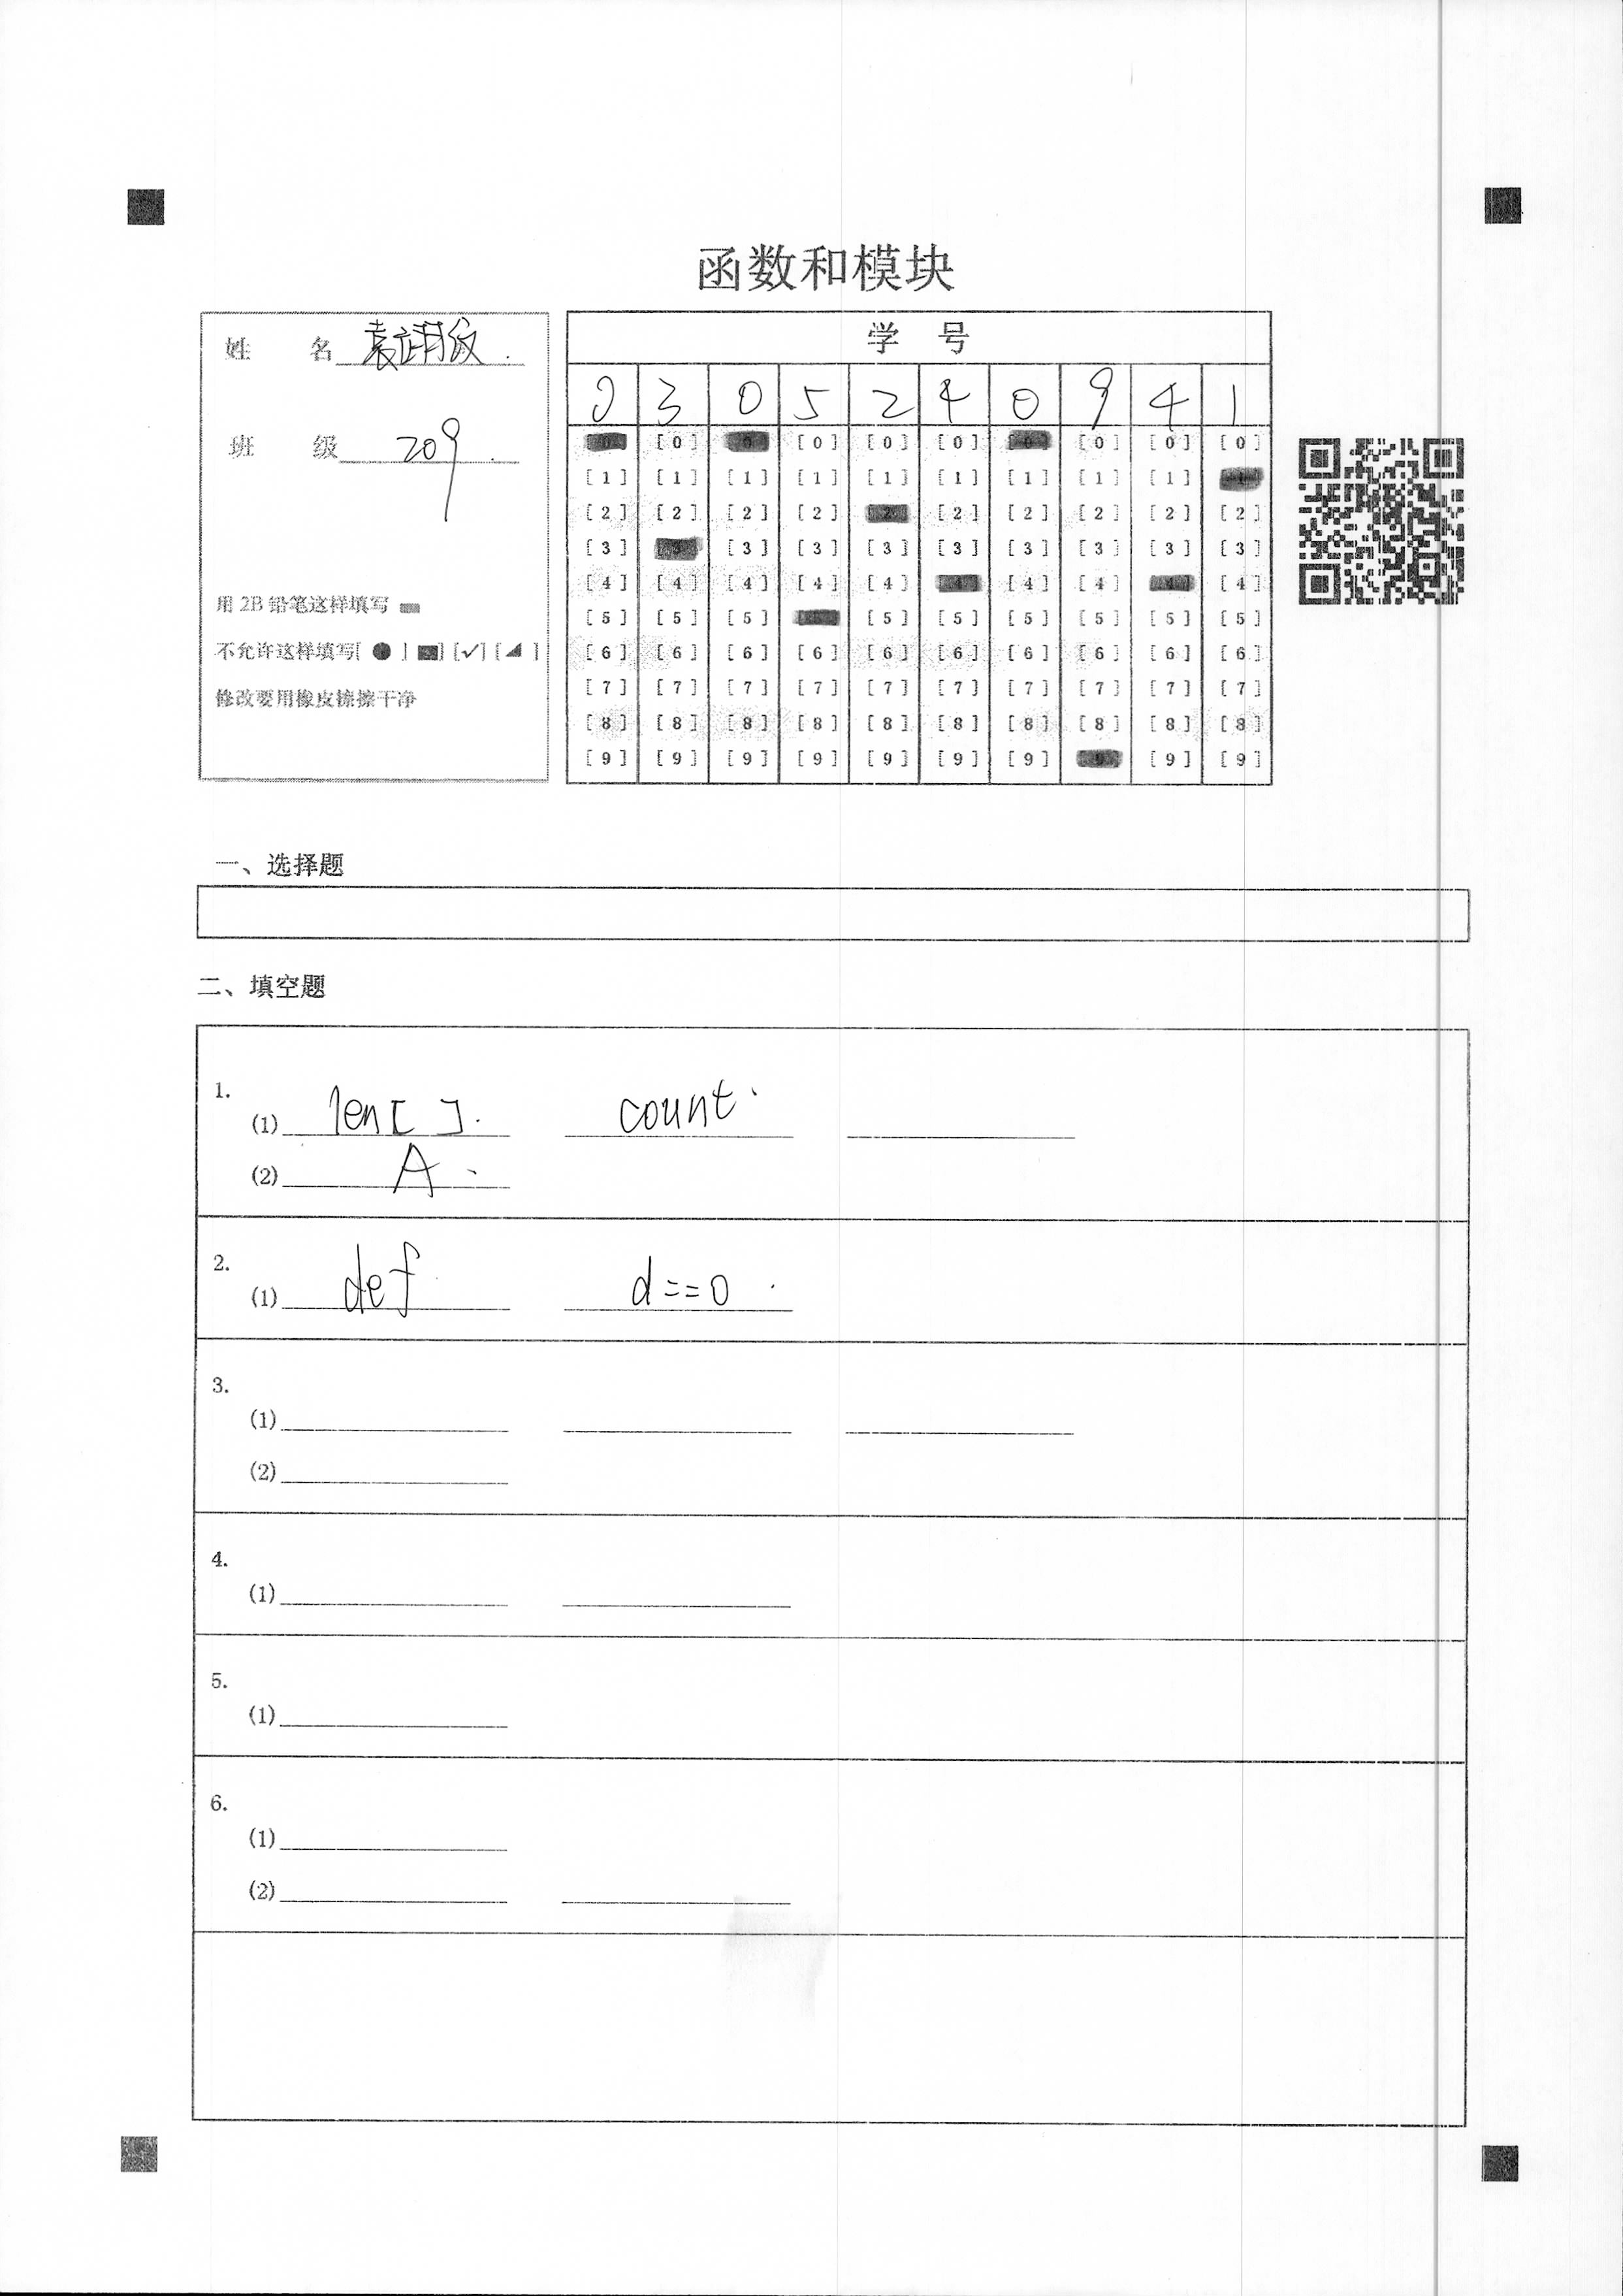 函数和模块
姓 名
班 级 209
用 2B 铅笔这样填写
不允许这样填写[ ● ] [■] [✓] [◢ ]
修改要用橡皮擦擦干净
学 号
0 3 0 5 2 4 0 9 4 1
[0] [0] [0] [0] [0] [0] [0]
[1] [1] [1] [1] [1] [1] [1] [1] [1]
[2] [2] [2] [2] [2] [2] [2] [2] [2]
[3] [3] [3] [3] [3] [3] [3] [3] [3]
[4] [4] [4] [4] [4] [4] [4] [4]
[5] [5] [5] [5] [5] [5] [5] [5] [5]
[6] [6] [6] [6] [6] [6] [6] [6] [6] [6]
[7] [7] [7] [7] [7] [7] [7] [7] [7] [7]
[8] [8] [8] [8] [8] [8] [8] [8] [8] [8]
[9] [9] [9] [9] [9] [9] [9] [9] [9]
一、选择题
二、填空题
1.
(1) len[ ]. count.
(2) A.
2.
(1) def d==0.
3.
(1)
(2)
4.
(1)
5.
(1)
6.
(1)
(2)